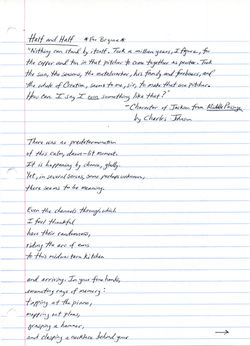 Half and Half *for Regina*
"Nothing can stand by itself. Took a million years, I figure, for
the copper and tin in that pitcher to come together as pewter. Took
the sun, the seasons, the metalworker, his family and forebears, and
the whole of Creation, seems to me, sir, to make that one pitcher.
How can I say I own something like that?"
- Character of Jackson from Middle Passage
by Charles Johnson
There was no predetermination
of this calm, dawn-lit moment.
It is happening by chance, gladly.
Yet, in several senses, some perhaps unknown,
there seems to be meaning.
Even the channels through which
I feel thankful
have their randomness,
riding the arc of eons
to this modern term kitchen
and arriving. In your fine hands,
emanating rays of memory:
tapping at the piano,
mapping out plans,
grasping a hammer,
and clasping a necklace behind your
→